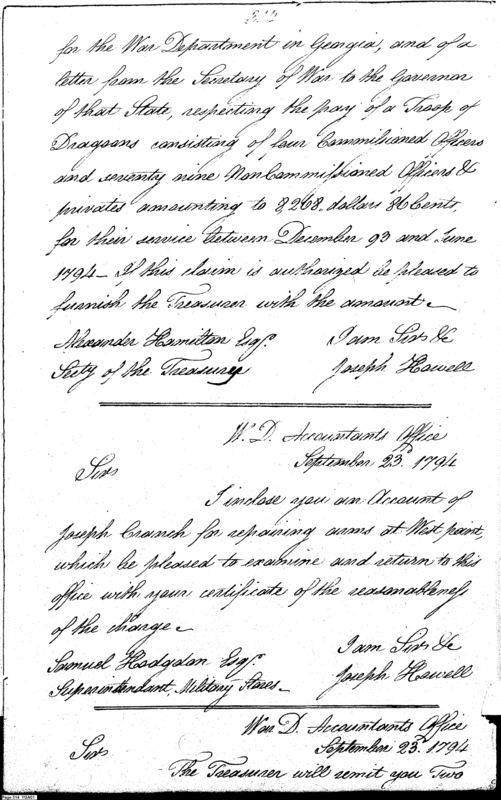 for the War Department in Georgia, and of a
letter from the Secretary of War to the Governor
of that State, respecting the pay of a Troop of
Dragoons consisting of four Commissioned Officers
and seventy nine NonCommissioned Officers &
privates amounting to 8,268. dollars 86 Cents,
for their service between December 93 and June
1794 — If this claim is authorized be pleased to
furnish the Treasurer with the amount —
Alexander Hamilton Esqr. I am Sir &c
Secty of the Treasury Joseph Howell
W. D. Accountants Office
September 23d. 1794
Sir
I inclose you an Account of
Joseph Cranch for repairing arms at West point,
which be pleased to examine and return to this
office with your certificate of the reasonableness
of the charge —
I am Sir &c
Samuel Hodgdon Esqr. Joseph Howell
Superintendant, Military Stores —
War D. Accountants Office
September 23d. 1794
Sir
The Treasurer will remit you Two